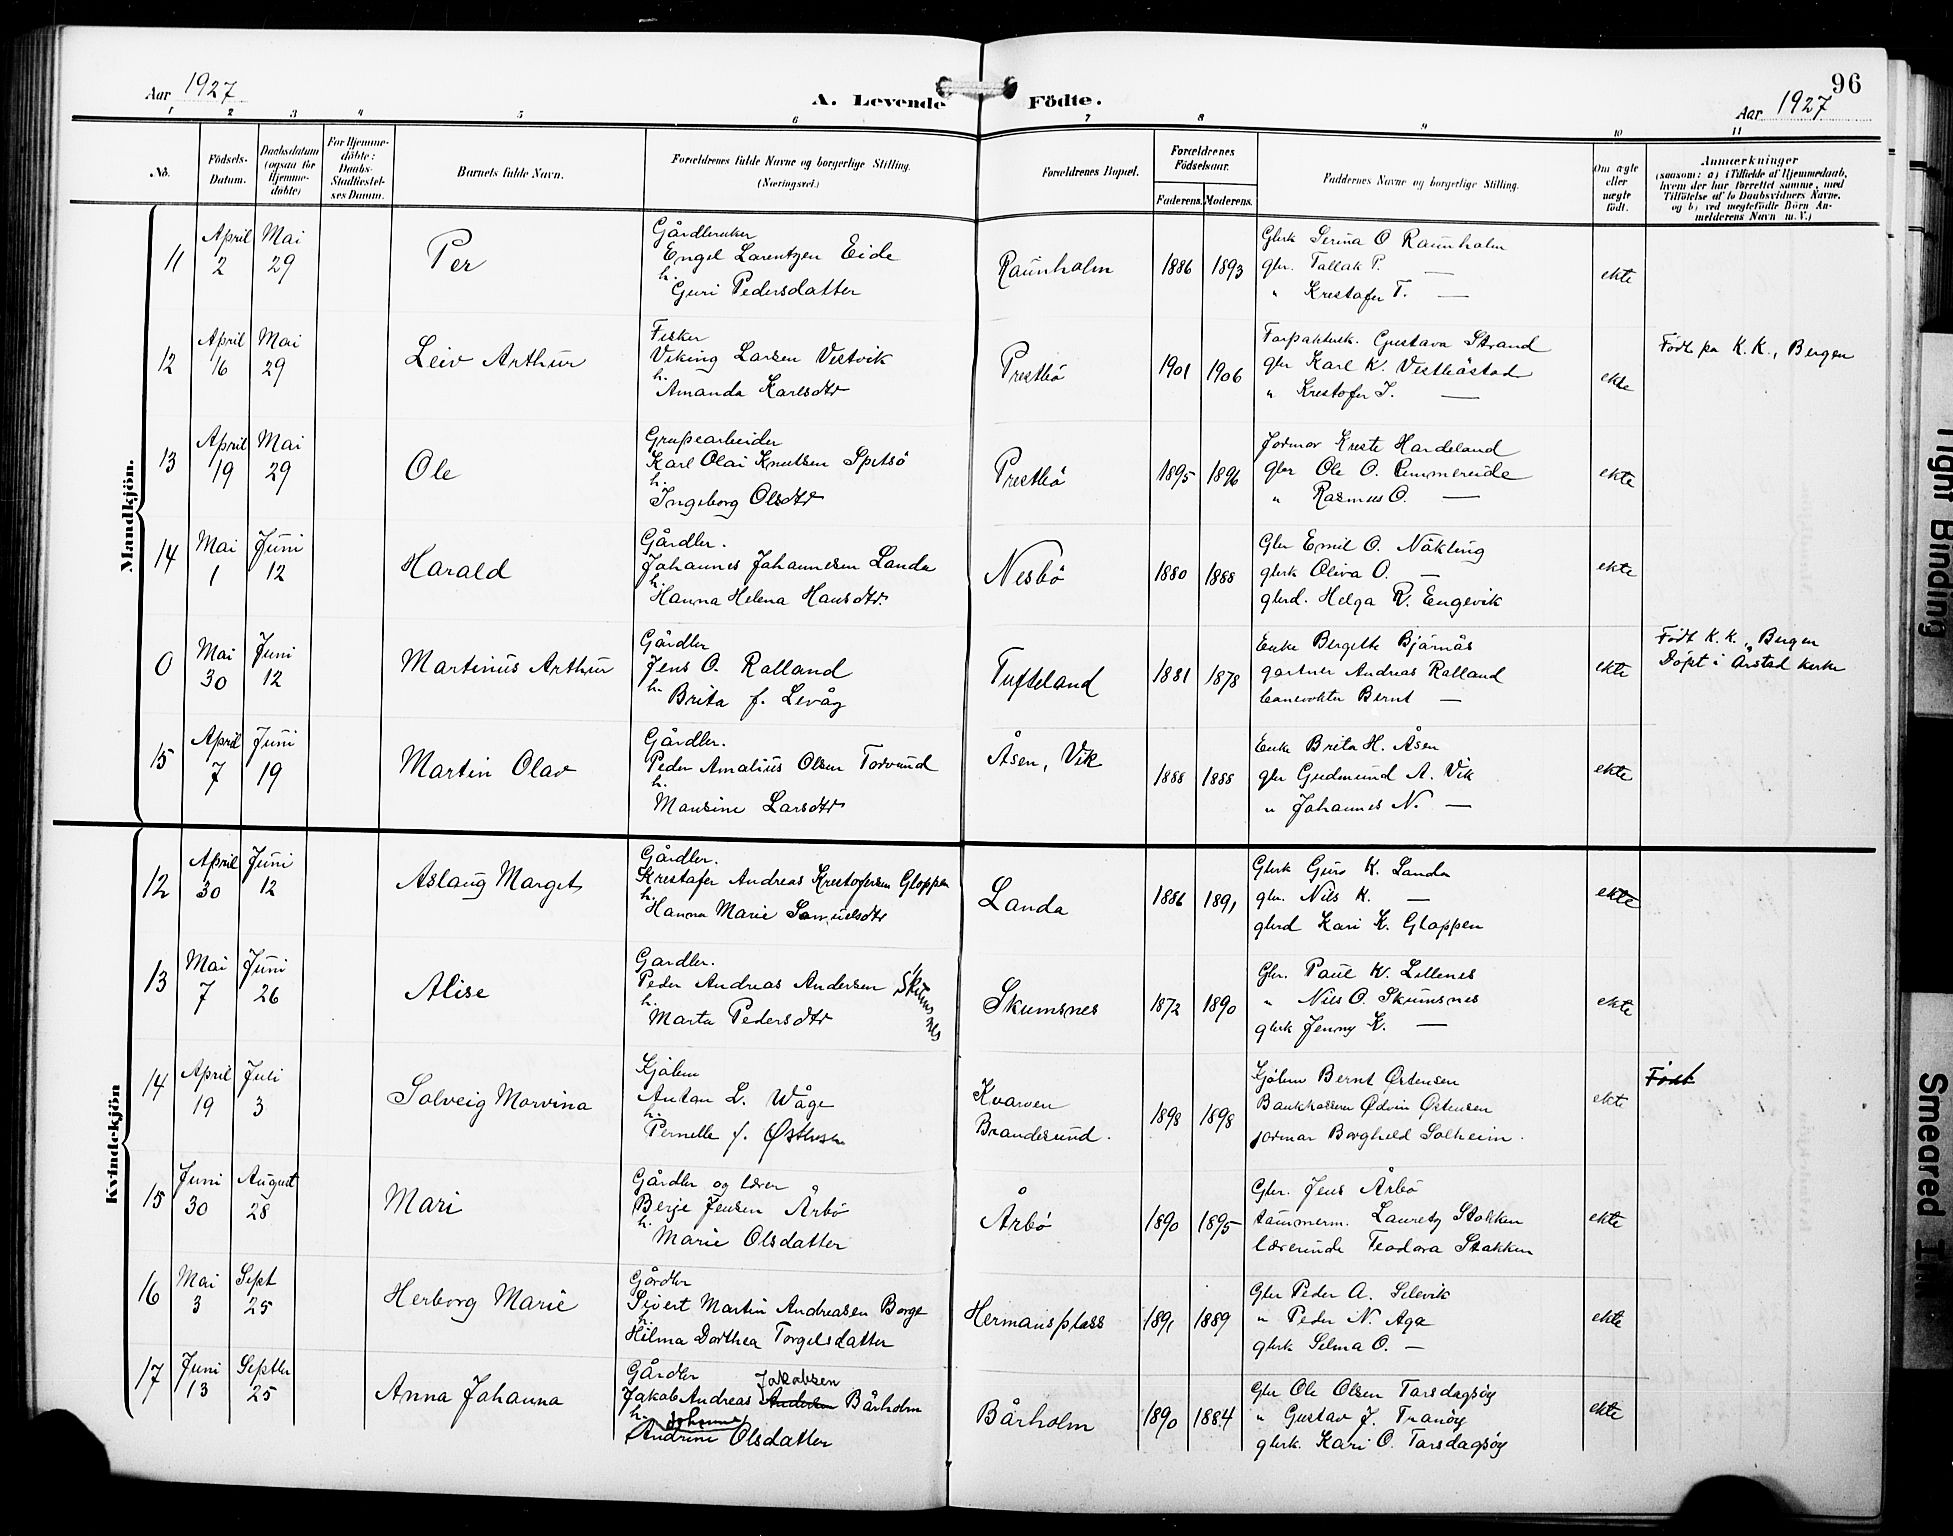 96
Aar 1927
A. Levende Födte.
Aar 1927
1 2 3 4 5 6 7 8 9 10 11
No.
Födsels-
Datum.
Daabsdatum
(ogsaa for
Hjemme-
döbte)
For Hjemme-
döbte:
Daabs-
Stadfæstel-
ses Datum.
Barnets fulde Navn.
Forældrenes fulde Navne og borgerlige Stilling.
(Næringsvei.)
Forældrenes Bopæl.
Forældrenes
Födselsaar.
Faderens. Moderens.
Faddernes Navne og borgerlige Stilling.
Om ægte
eller
uægte
født.
Anmærkninger
(saasom: a) i Tilfælde af Hjemmedaab,
hvem der har forrettet samme, med
Tilföielse af to Daabsvidners Navne,
og b) ved uegtefödte Börn An-
melderens Navn m. V.)
Mandkjön.
11
April 2
Mai 29
Per
Gårdbruker
Engel Larentzen Eide
h. Guri Pedersdatter
Raunholm
1886 1893
Glerk Serina O Raunholm
glr. Tallak P. —
" Krestafer T. —
ekte
12
April 16
Mai 29
Leiv Arthur
Fisker
Viking Larsen Vestvik
h. Amanda Karlsdtr
Prestbö
1901 1906
Forpakterk. Gustava Strand
glr Karl K. Vestböstad
" Krestofer J. —
ekte
Födt pa K.K., Bergen
13
April 19
Mai 29
Ole
Grubearbeider
Karl Olai Knutsen Spitsö
h. Ingeborg Olsdtr
Prestbö
1895 1896
Jordmor Kreste Hardeland
glbr Ole O. Rimmereide
" Rasmus O. —
ekte
14
Mai 1
Juni 12
Harald
Gårdbr.
Johannes Johannesen Landa
h. Hanna Helena Hansdtr.
Nesbö
1880 1888
Glbr Emil O. Nökling
glerk Oliva O. —
glerd. Helga R. Engevik
ekte
0
Mai 30
Juni 12
Martinus Arthur
Gårdbr
Jens O. Ralland
h. Brita f. Levåg
Tufteland
1881 1878
Enke Bergette Bjørnås
gartner Andreas Ralland
Bernt —
ekte
Födt K.K., Bergen
Döpt i Årstad kerke
15
April 7
Juni 19
Martin Olav
Gårdbr.
Peder Amalius Olsen Torvund
h. Mansine Larsdtr
Åsen, Vik
1888 1888
Enke Brita H. Åsen
glr Gudmund A. Vik
" Johannes N. —
ekte
Kvindekjön
12
April 30
Juni 12
Aslaug Marget
Gårdbr.
Krestafer Andreas Krestofersen Gloppen
h. Hanna Marie Samuelsdtr
Landa
1886 1891
Glerk Guro K. Landa
glr. Nils K. —
glerd Kari K. Gloppen
ekte
13
Mai 7
Juni 26
Alise
Gardbr.
Peder Andreas Andersen Skumsnes
h. Marta Pedersdtr
Skumsnes
1872 1890
Glr. Paul K. Lillenes
" Nils O. Skumsnes
glerk Jenny K. —
ekte
14
April 19
Juli 3
Solveig Morvina
Kjöbm
Anton L. Wåge
h. Pernelle f. Østhus
Kvarven
Brandesund.
1898 1898
Kjöbm Bernt Østensen
Bankkasserer Ødvin Østensen
jordmor Borghild Solheim.
ekte
Födt
15
Juni 30
August 28
Mari
Gårdbr og lærer
Berje Jensen Årbö
h. Marie Olsdatter
Årbö
1890 1895
Glbr. Jens Årbö
tømmerm. Lauretz Stokken
lærerinde Teodora Stokken
ekte
16
Mai 3
Sept 25
Herborg Marie
Gårdbr
Sivert Martin Andreasen Borge
h. Hilma Dorthea Torgelsdatter
Hermansplass
1891 1889
Glbr Peder A. Selevik
" Peder N. Aga
glerk Selma O. —
ekte
17
Juni 13
Septbr 25
Anna Johanna
Gårdbr Jakobsen
Jakob Andreas Andersen Bårholm
h. Johanna
Andrine Olsdatter
Bårholm
1890 1884
Glbr Ole Olsen Tarsdagsöy
" Gustav J. Tranöy
glerk. Kari O. Tarsdagsöy
ekte
Tight Binding
Smeared Ink